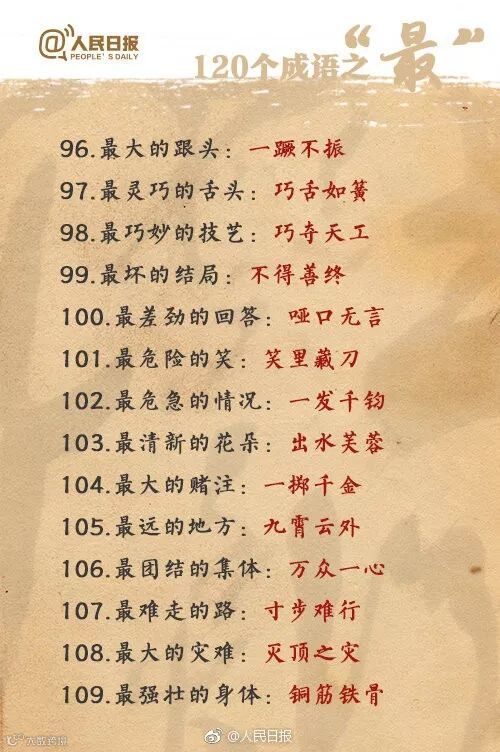 @人民日报
PEOPLE'S DAILY
120个成语之“最”
96.最大的跟头：一蹶不振
97.最灵巧的舌头：巧舌如簧
98.最巧妙的技艺：巧夺天工
99.最坏的结局：不得善终
100.最差劲的回答：哑口无言
101.最危险的笑：笑里藏刀
102.最危急的情况：一发千钧
103.最清新的花朵：出水芙蓉
104.最大的赌注：一掷千金
105.最远的地方：九霄云外
106.最团结的集体：万众一心
107.最难走的路：寸步难行
108.最大的灾难：灭顶之灾
109.最强壮的身体：铜筋铁骨
大数跨境
@人民日报